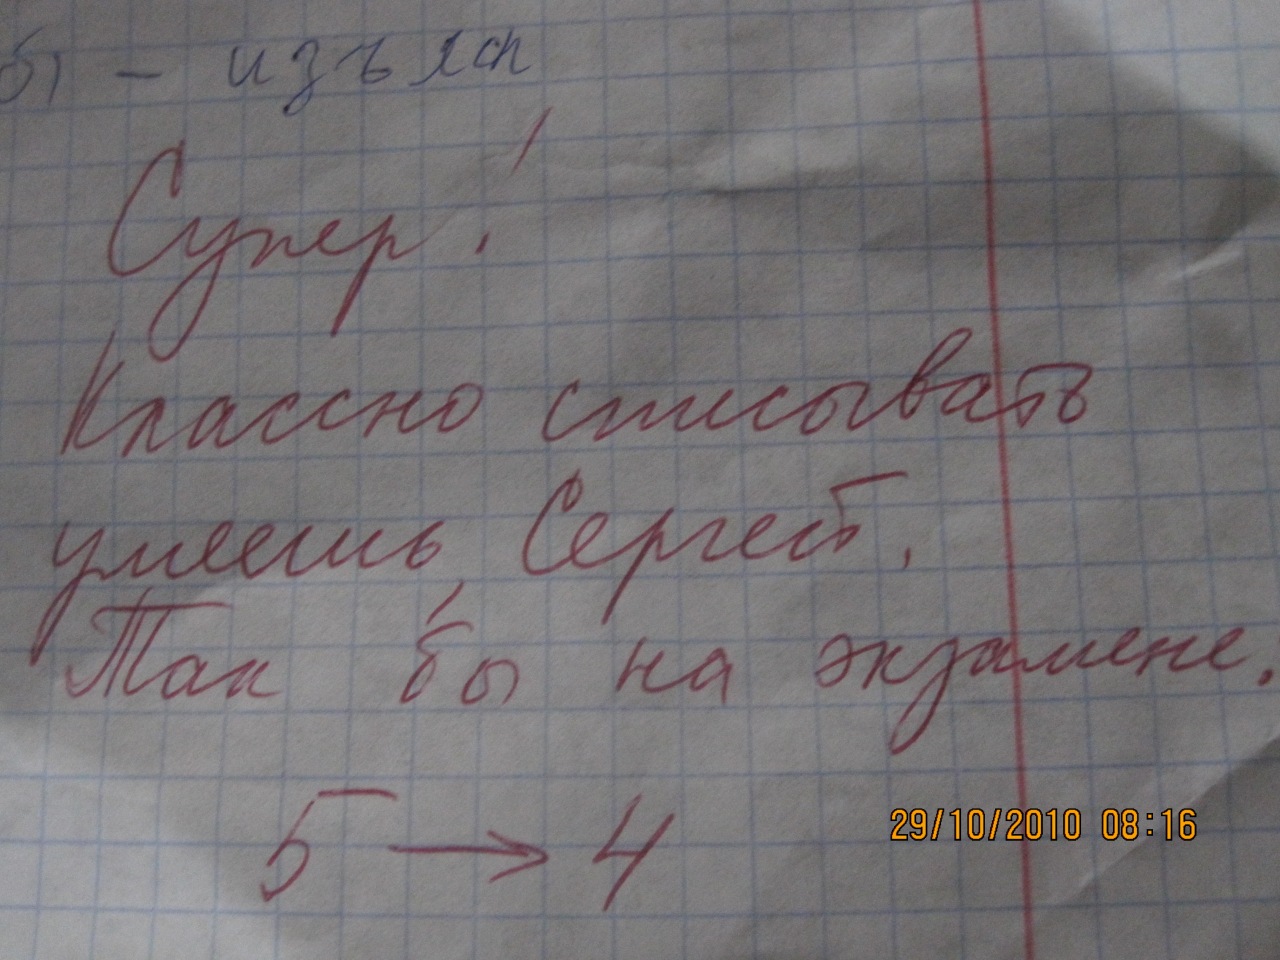 б) – изъяс
Супер!
Классно списывать
умеешь, Сергей.
Так бы на экзамене.
5 → 4
29/10/2010 08:16